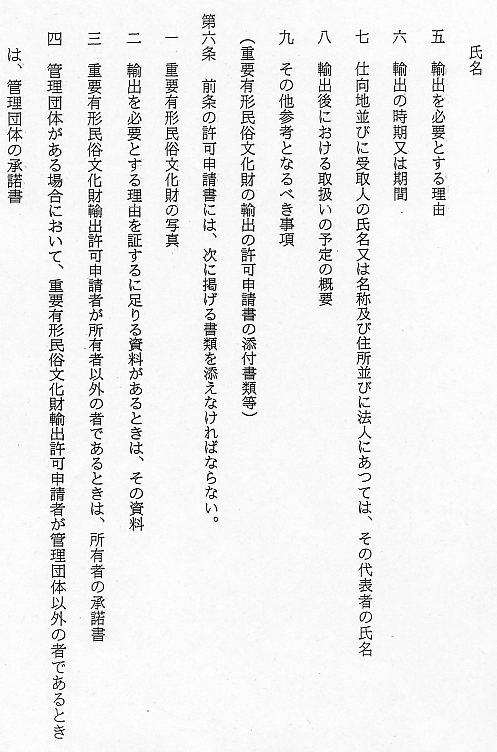 氏名
五　輸出を必要とする理由
六　輸出の時期又は期間
七　仕向地並びに受取人の氏名又は名称及び住所並びに法人にあつては、その代表者の氏名
八　輸出後における取扱いの予定の概要
九　その他参考となるべき事項
（重要有形民俗文化財の輸出の許可申請書の添付書類等）
第六条　前条の許可申請書には、次に掲げる書類を添えなければならない。
一　重要有形民俗文化財の写真
二　輸出を必要とする理由を証するに足りる資料があるときは、その資料
三　重要有形民俗文化財輸出許可申請者が所有者以外の者であるときは、所有者の承諾書
四　管理団体がある場合において、重要有形民俗文化財輸出許可申請者が管理団体以外の者であるとき
は、管理団体の承諾書